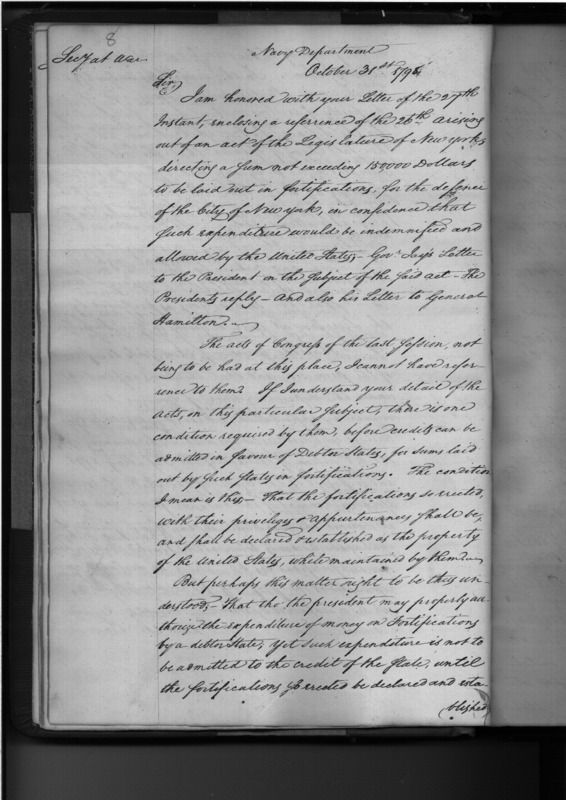 8
Secy at War
Navy Department
October 31st 1798
Sir,
I am honored with your Letter of the 27th
Instant, enclosing a reference of the 26th arising
out of an act of the Legislature of New york,
directing a sum not exceeding 150,000 Dollars
to be laid out in fortifications, for the defence
of the City of New york, in confidence that
such expenditure would be indemnified and
allowed by the United States,- Govr Jay's Letter
to the President on the subject of the said act - The
Presidents reply - And also his Letter to General
Hamilton.-
The acts of Congress of the last Session, not
being to be had at this place, I cannot have refer-
rence to them. If I understand your detail of the
acts, on this particular subject, there is one
condition required by them, before credits can be
admitted in favour of Debtor States, for sums laid
out by such States in fortifiiations. The condition
I mean is this,- That the fortifications so erected,
with their priveliges & appurtenances shall be,
and shall be declared & established as the property
of the United States, while maintained by them.-
But perhaps this matter ought to be thus un
derstood,- That tho the president may properly au
thorize the expenditure of money on Fortifications
by a debtor State, yet such expenditure is not to
be admitted to the credit of the State, until
the fortifications so erected be declared and esta
blished